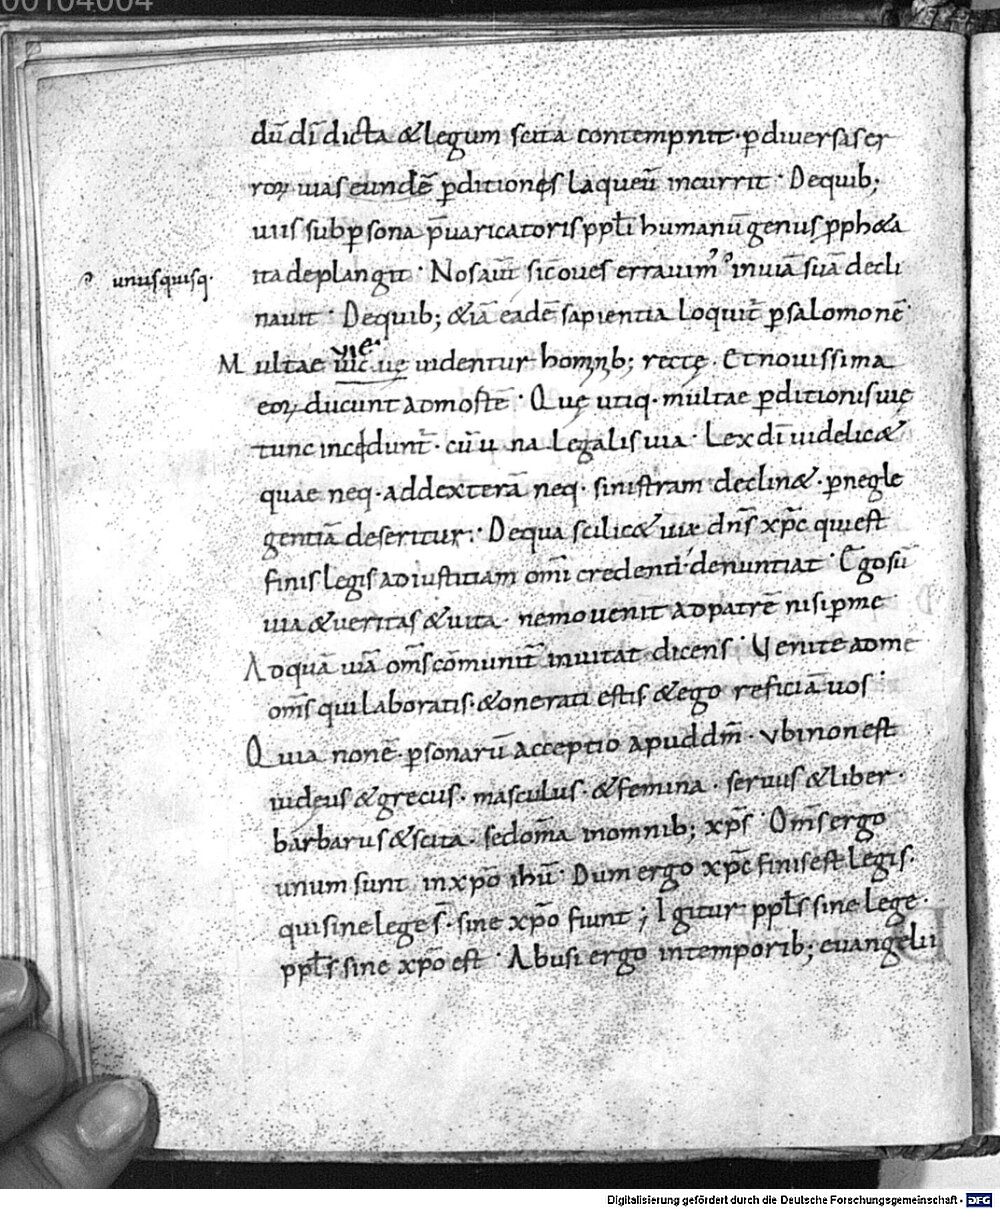 00104004
dū dī dicta & legum scita contempnit · ꝑ diuersas er
roꝝ uias eundē ꝑditionęs laqueū incurrit · De quib;
uiis sub ꝑsona p̄uaricatoris ppłi humanū genus ꝓph&a
ita deplangit · Nos aūt sic oues errauimꝰ in uiā suā decli
unusquisq·
nauit · De quib; &iā eadē sapientia loquit̄ ꝑ salomonē·
Multae uic uę uidentur hominib; rectę · Et nouissima
vie·
eoꝝ ducunt ad mostē · Quę utiq· multae ꝑditionis uię
tunc incędunt̄ · cū u na legalis uia · Lex dī uidelic&
quae neq· ad dexterā neq· sinistram declin& · ꝑ negle
gentiā deseritur · De qua scilic& uia dn̄s xp̄c qui est
finis legis ad iustitiam om̄i credenti denuntiat · Ego sū
uia & ueritas & uita · nemo uenit ad patrē nisi ꝑ me
Ad quā uiā om̄s cōmunit̄ inuitat dicens · Venite ad me
om̄s qui laboratis · & onerati estis & ego reficiā uos ·
Quia non ē · ꝑsonarū acceptio apud dm̄ · vbi non est
iudeus & grecus · masculus · & femina · seruus & liber ·
barbarus & scita · sed om̄a in omnib; xp̄s · Om̄s ergo
unum sunt in xp̄o ihū · Dum ergo xp̄c finis est legis·
qui sine lege s̄ · sine xp̄o fiunt ; Igitur ppłs sine lege·
ppłs sine xp̄o est · Abusi ergo in temporib; euangelii
Digitalisierung gefördert durch die Deutsche Forschungsgemeinschaft - DFG